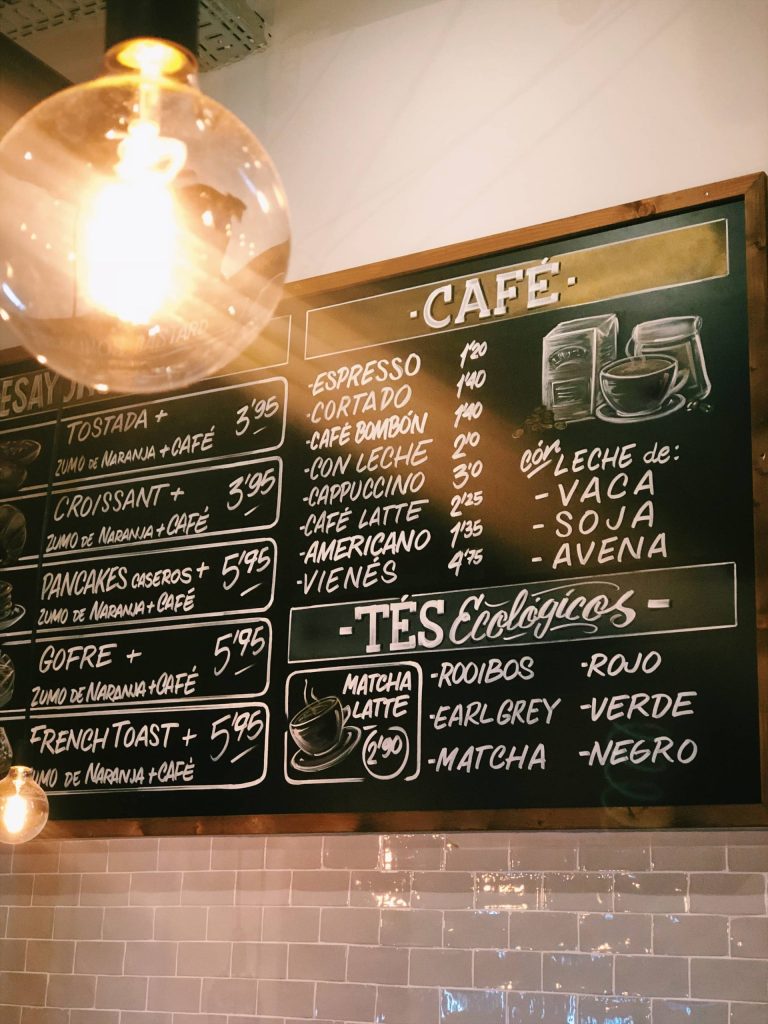 TOSTADA + 3'95
ZUMO DE NARANJA + CAFÉ
CROISSANT + 3'95
ZUMO DE NARANJA + CAFÉ
PANCAKES CASEROS + 5'95
ZUMO DE NARANJA + CAFÉ
GOFRE + 5'95
ZUMO DE NARANJA + CAFÉ
FRENCH TOAST + 5'95
ZUMO DE NARANJA + CAFÉ
·CAFÉ·
-ESPRESSO 1'20
-CORTADO 1'40
-CAFÉ BOMBÓN 1'40
-CON LECHE 2'0
-CAPPUCCINO 3'0
-CAFÉ LATTE 2'25
-AMERICANO 1'35
-VIENÉS 4'75
CÓN LECHE de:
-VACA
-SOJA
-AVENA
-TÉS Ecológicos-
MATCHA
LATTE
2'90
-ROOIBOS
-EARL GREY
-MATCHA
-ROJO
-VERDE
-NEGRO